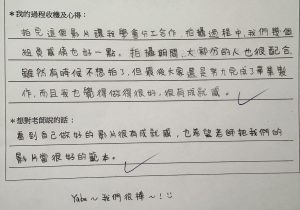 *我的過程收穫及心得:
拍完這個影片讓我學會分工合作,拍攝過程中,我們學個
組員感情也好一點。拍攝期間,大部分的人也很配合
雖然有時候不想拍了,但最後大家還是努力完成了畢業製
作,而且我也覺得做得很好,很有成就感。
*想對老師說的話:
看到自己做好的影片很有成就感,也希望老師把我們的
影片當很好的範本。
Yabe~我們很棒~!